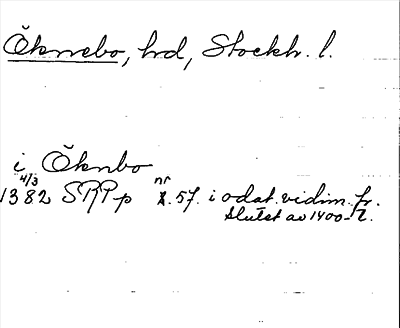 Öknebo, hrd, Stockh. l.
i Öknbo
4/3
1382 SRPp nr 57. i odat. vidim. fr.
slutet av 1400-t.